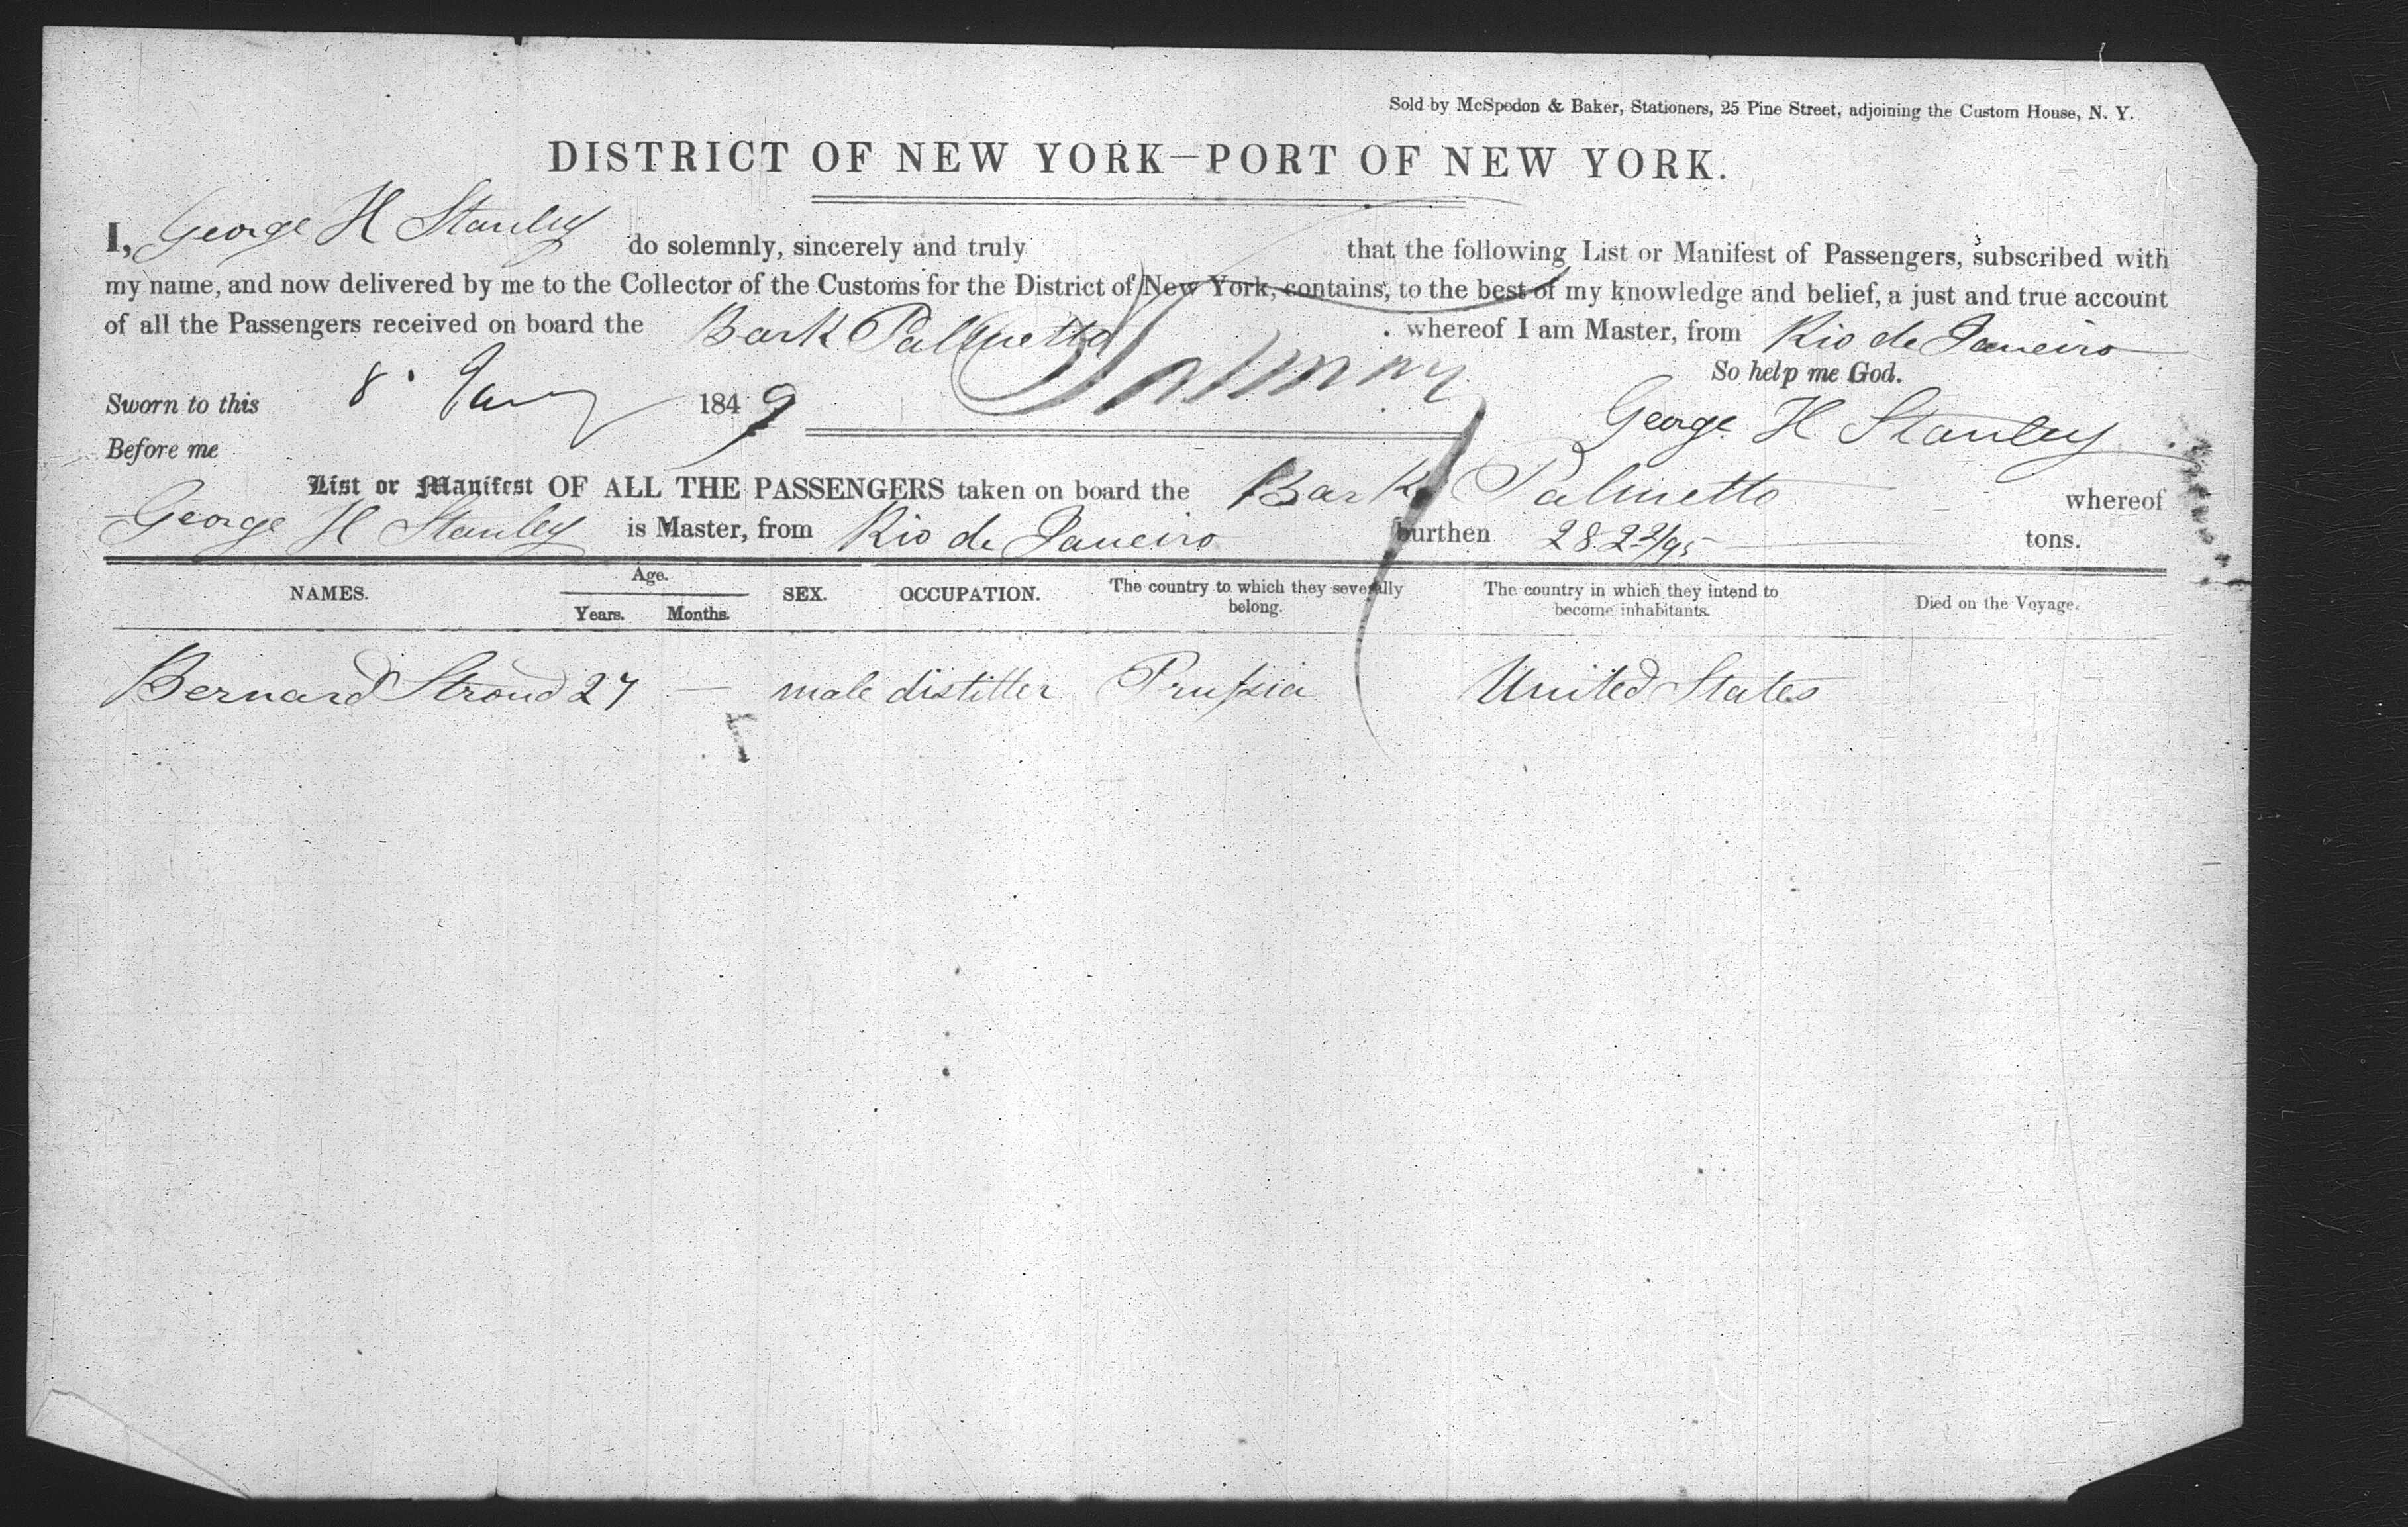 Sold by McSpedon & Baker, Stationers, 25 Pine Street, adjoining the Custom House, N. Y.
DISTRICT OF NEW YORK—PORT OF NEW YORK.
I, George H Stanley do solemnly, sincerely and truly that the following List or Manifest of Passengers, subscribed with
my name, and now delivered by me to the Collector of the Customs for the District of New York, contains, to the best of my knowledge and belief, a just and true account
of all the Passengers received on board the Bark Palmetto whereof I am Master, from Rio de Janeiro
So help me God.
Sworn to this 8 Jany 1849 George H. Stanley
Before me
List or Manifest OF ALL THE PASSENGERS taken on board the Bark Palmetto whereof
George H Stanley is Master, from Rio de Janeiro burthen 282 2/95 tons.
NAMES. Age. Years. Months. SEX. OCCUPATION. The country to which they severally belong. The country in which they intend to become inhabitants. Died on the Voyage.
Bernard Stroud 27 — male distiller Prussia United States